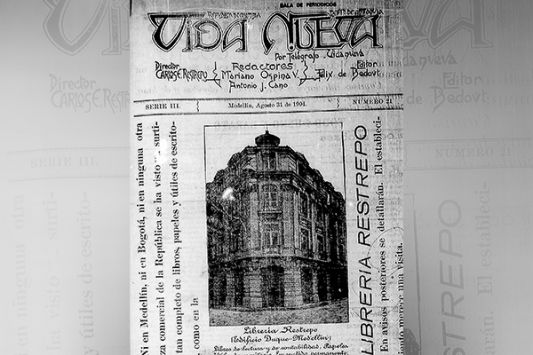 SALA DE PERIODICOS
VIDA NUEVA
Por Telégrafo - Vidanueva
Director
CARLOS E. RESTREPO
Redactores
Mariano Ospina V.
Antonio J. Cano
Editor
Félix de Bedout
SERIE III.
Medellín, Agosto 31 de 1904.
NUMERO 21
Ni en Medellín, ni en Bogotá, ni en ninguna otra
za comercial de la República se ha visto surti-
tan completo de libros, papeles y útiles de escrito-
como en la
LIBRERIA RESTREPO
En avisos posteriores se detallarán. El estableci-
merece una visita.
Librería Restrepo
(Edificio Duque-Medellín)